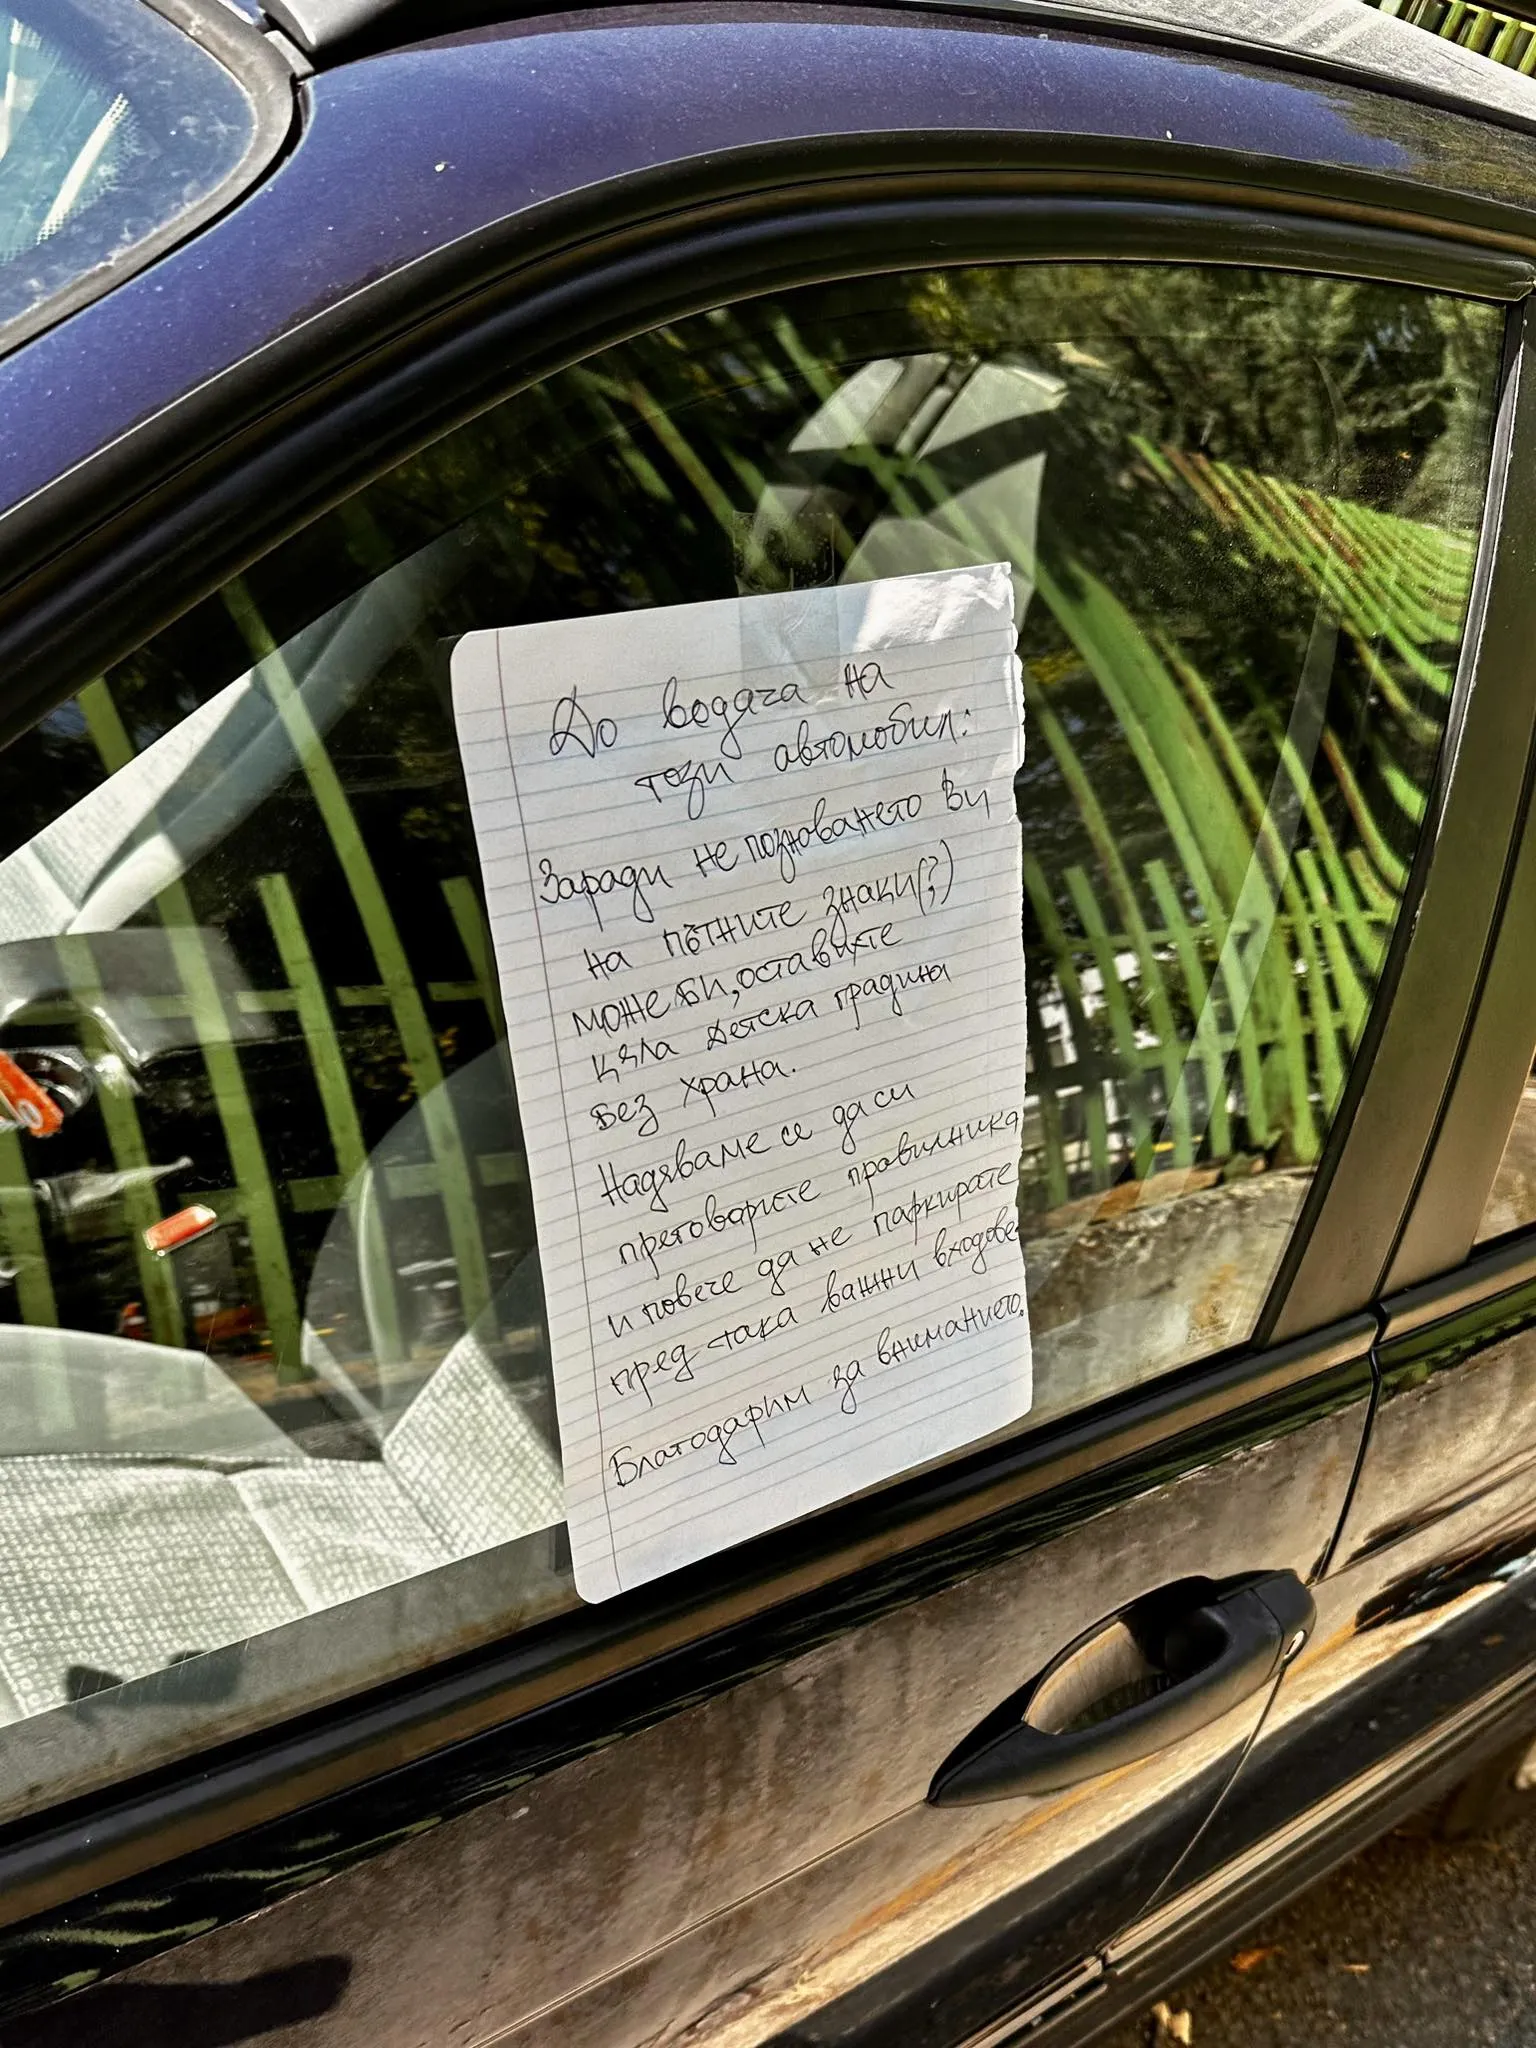 До водача на
този автомобил:
Заради не познаването Ви
на пътните знаци(?)
може би, оставихте
цяла детска градина
без храна.
Надяваме се да си
преговорите правилника
и повече да не паркирате
пред така важни входове.
Благодарим за вниманието.